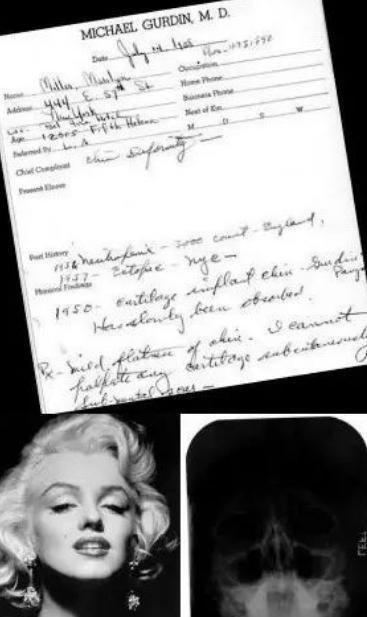 MICHAEL GURDIN, M. D.
Date July 14
Name Miller, Marilyn
Occupation
Address 444 E. 57th St
Home Phone
New York
Business Phone
Age
12305 Fifth Helena
Next of Kin
Referred By L. A.
M D S W
Chief Complaint chin deformity
Present Illness
Past History 1956 Neutropenia - 3000 count - England,
1957 - Ectopic - nyc -
Physical Findings
1950 - cartilage implant chin - Gurdin
Has slowly been absorbed.
Px - mild flatness of chin. I cannot
palpate any cartilage subcutaneously
Sub-mental scar -